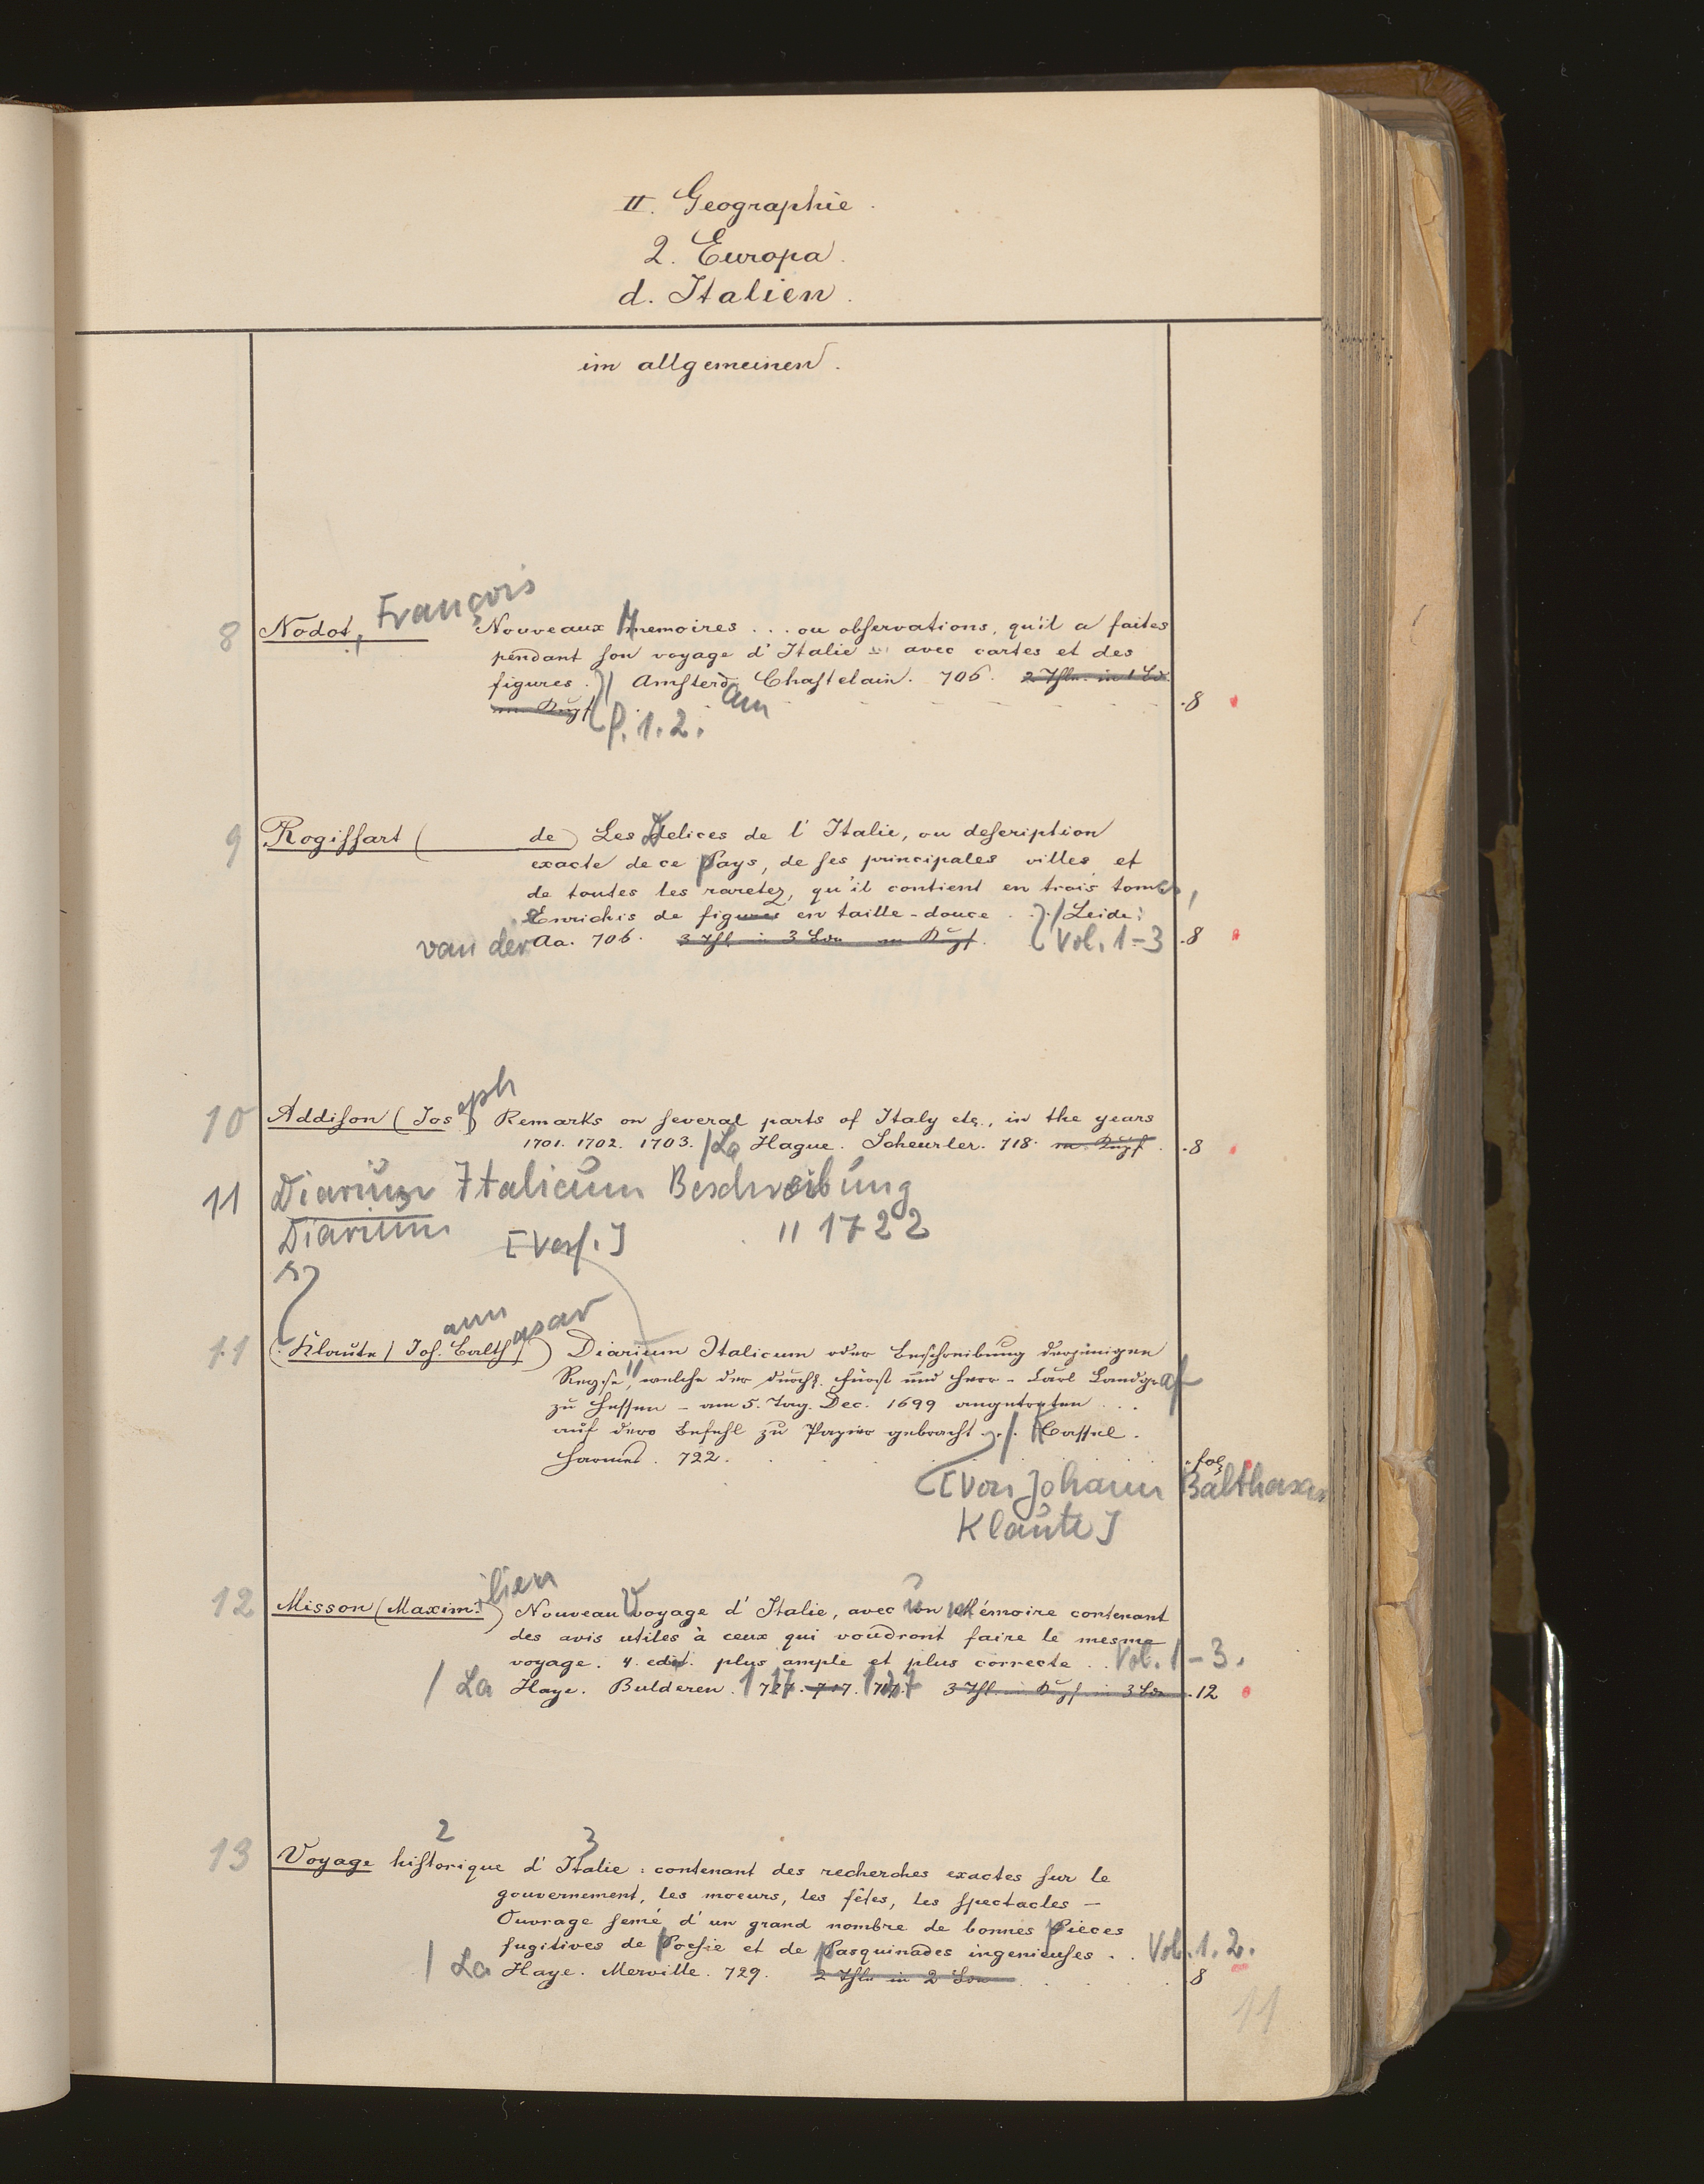 II. Geographie.
2. Europa.
d. Italien.
im allgemeinen.
8 Nodot, François Nouveaux Memoires ... ou observations, qu'il a faites
pendant son voyage d'Italie ... avec cartes et des
figures. Amsterdam Chastelain. 706. 2 Thle. in 1 Bd.
P. 1. 2. .8
9 Rogissart ( de) Les Delices de l'Italie, ou description
exacte de ce Pays, de ses principales villes et
de toutes les raretez, qu'il contient en trois tomes,
Enrichis de figures en taille-douce .. / Leide:
van der Aa. 706. 3 Thl in 3 Bdn Vol. 1-3 .8
10 Addison (Joseph) Remarks on several parts of Italy etc., in the years
1701. 1702. 1703. / La Hague. Scheurler. 718. .8
11 Diarium Italicum Beschreibung
Diarium [Verf.] " 1722
11 (Klaute / Joh. Balthasar) Diarium Italicum oder Beschreibung derjenigen
Reyse", welche der durchl. Fürst und Herr - Carl Landgraf
zu Hessen - am 5. Tag. Dec. 1699 angetreten ...
auf dero Befehl zu Papier gebracht ... / Cassel.
Harmes. 722. .fol
[von Johann Balthasar
Klaute]
12 Misson (Maximilien) Nouveau Voyage d'Italie, avec un Mémoire contenant
des avis utiles à ceux qui voudront faire le mesme
voyage. 4. edit. plus ample et plus correcte .. Vol. 1-3.
/ La Haye. Bulderen. 3 Thl in 3 Bdn .12
13 Voyage historique d'Italie: contenant des recherches exactes sur le
gouvernement, les moeurs, les fêtes, les spectacles -
Ouvrage semé d'un grand nombre de bonnes Pièces
fugitives de Poesie et de Pasquinades ingenieuses .. Vol. 1. 2.
/ La Haye. Merville. 729. 2 Thle in 2 Bdn 8
11